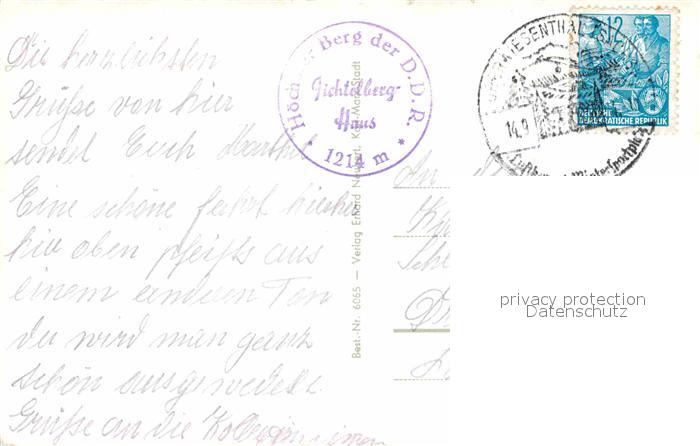 Die herzlichsten
Grüße von hier
sendet Euch
Eine schöne Fahrt hierher
hier oben pfeift's aus
einem anderen Ton
da wird man ganz
schön ausgewedelt
Grüße an die
Höchster Berg der D.D.R.
Fichtelberg-
Haus
* 1214 m *
Best.-Nr. 6065 — Verlag Erhard Neubert, Karl-Marx-Stadt
OBERWIESENTHAL
14.9
12
5
DEUTSCHE
DEMOKRATISCHE REPUBLIK
An
privacy protection
Datenschutz